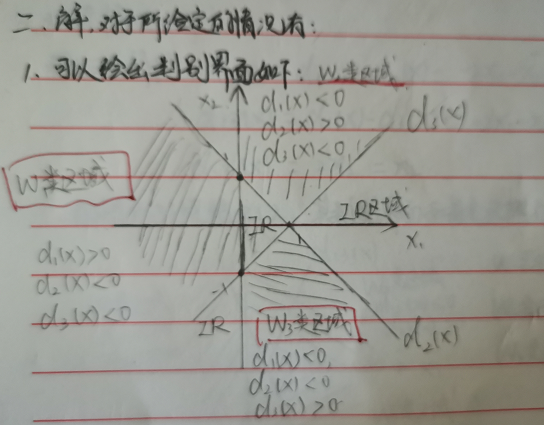 二、解,对于所给定的情况有:
1、可以绘出判别界面如下: W₂类区域
x₂
d₁(x)<0
d₂(x)>0
d₃(x)<0
d₃(x)
W类区域
IR
IR区域
1
x₁
d₁(x)>0
d₂(x)<0
d₃(x)<0
-1
IR
W₃类区域
d₂(x)
d₁(x)<0,
d₂(x)<0
d₁(x)>0